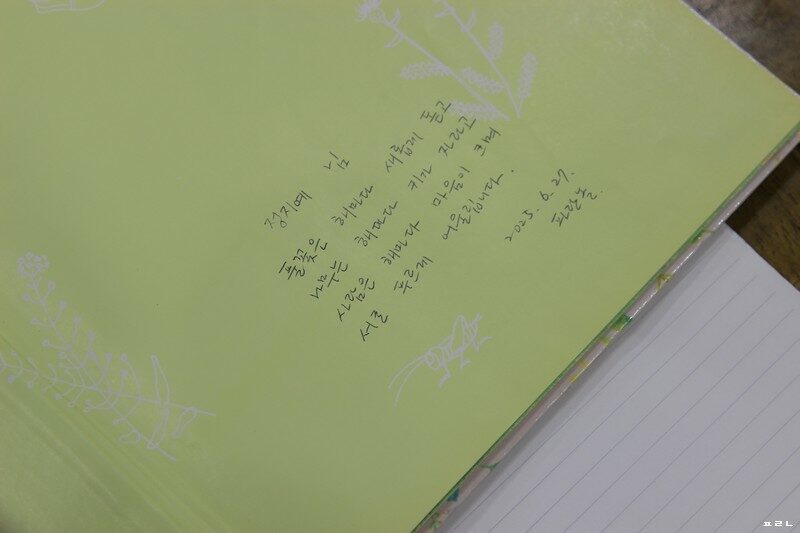 정지예 님
풀꽃은 해마다 새롭게 돋고
나무는 해마다 키가 자라고
사람은 해마다 마음이 크며
서로 푸르게 어울립니다.
2025. 6. 27.
파란놀.
ㅍㄹㄴ